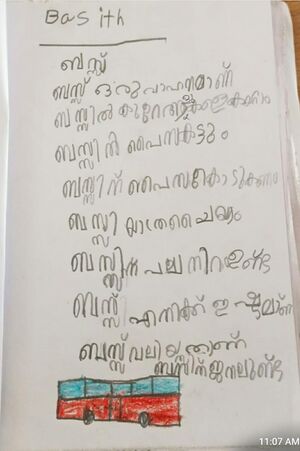 Basith
ബസ്സ്
ബസ്സ് ഒരു വാഹനമാണ്
ബസ്സിൽ കുറേ ആളുകളെ
ബസ്സിൽ പൈസ കിട്ടും
ബസ്സിന് പൈസ കൊടുക്കണം
ബസ്സി യാത്ര ചെയ്യും
ബസ്സിന പല നിറ ഉണ്ട്
ബസ്സ് എനിക്ക് ഇഷ്ടമാണ്
ബസ്സ് വലിയതാണ്
ബസ്സിന് ജനലുണ്ട്
11:07 AM